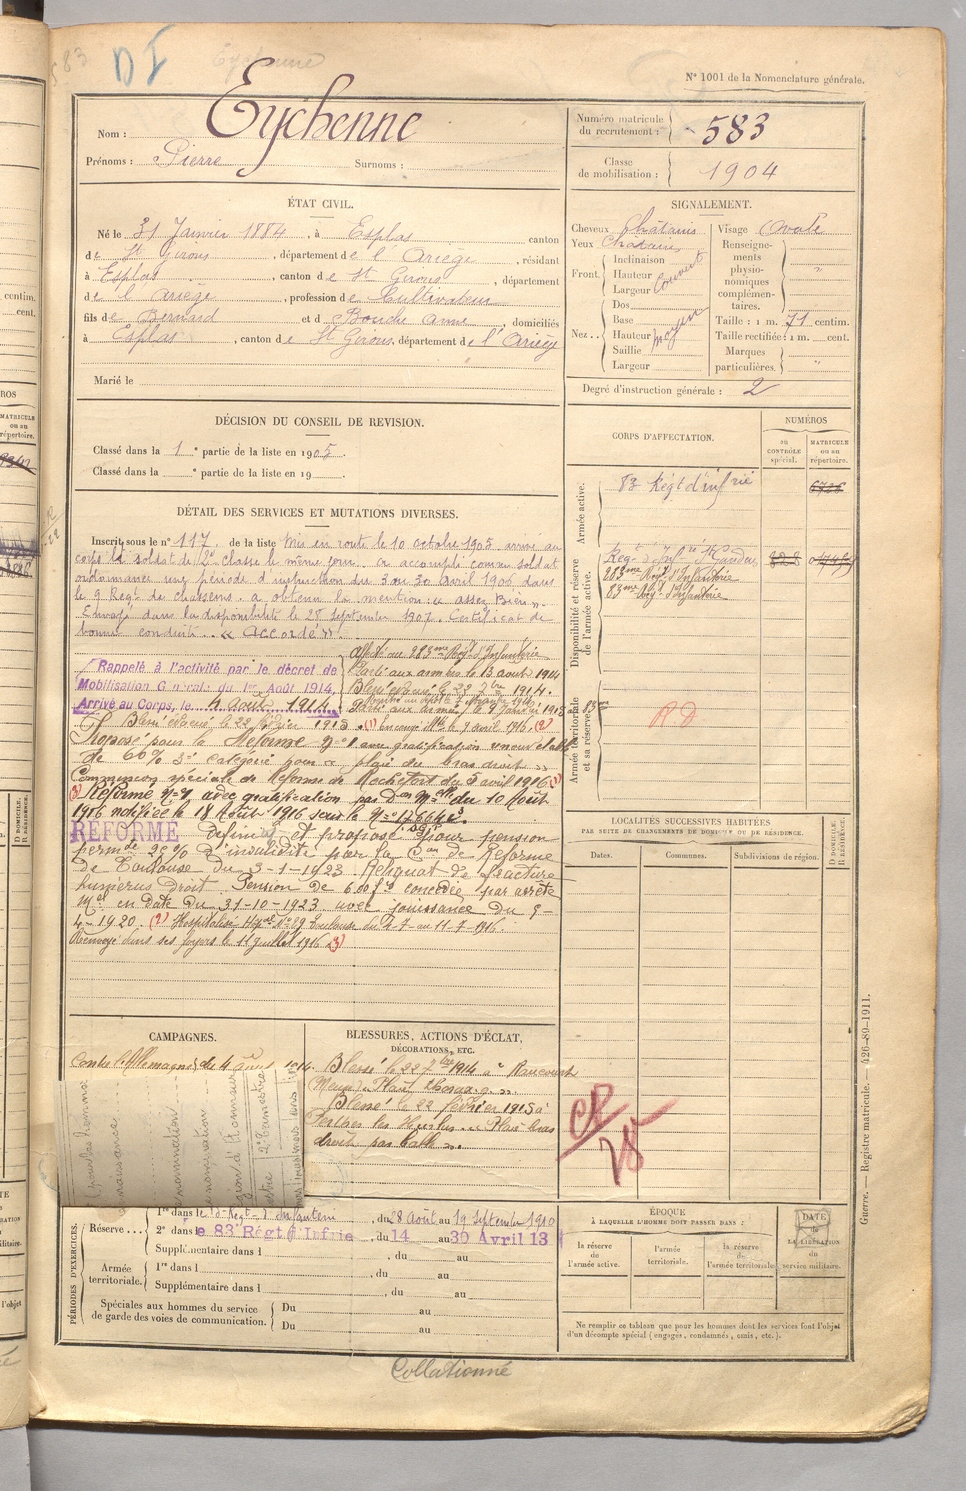 583
D I
Eychenne
N° 1001 de la Nomenclature générale.
Nom : Eychenne
Prénoms : Pierre Surnoms :
Numéro matricule du recrutement : 583
Classe de mobilisation : 1904
ÉTAT CIVIL.
Né le 31 Janvier 1884, à Esplas canton
de St Girons, département de l'Ariège, résidant
à Esplas, canton de St Girons, département
de l'Ariège, profession de Cultivateur
fils de Bernard et d Bouche Anne, domiciliés
à Esplas, canton de St Girons, département de l'Ariège
Marié le
SIGNALEMENT.
Cheveux Châtains
Yeux Châtains
Front. Inclinaison Hauteur Largeur Couvert
Nez. Dos Base Hauteur Saillie Largeur moyen
Visage Ovale
Renseignements physionomiques complémentaires. "
Taille : 1 m. 71 centim.
Taille rectifiée : 1 m. cent.
Marques particulières. "
Degré d'instruction générale : 2
DÉCISION DU CONSEIL DE REVISION.
Classé dans la 1e partie de la liste en 1905.
Classé dans la e partie de la liste en 19
DÉTAIL DES SERVICES ET MUTATIONS DIVERSES.
Inscrit sous le n° 117 de la liste Mis en route le 10 octobre 1905 arrivé au
corps et soldat de 2e classe le même jour. a accompli comme soldat
ordonnance une période d'instruction du 3 au 30 avril 1906 dans
le 9 Régt de chasseurs. a obtenu la mention : « assez Bien ».
Envoyé dans la disponibilité le 28 septembre 1907. Certificat de
bonne conduite « Accordé ».
Rappelé à l'activité par le décret de
Mobilisation Générale du 1er Août 1914.
Arrivé au Corps, le 4 août 1914.
Affecté au 283me Régt d'Infanterie
Parti aux armées le 13 août 1914
Blessé évacué le 22 7bre 1914.
Parti aux armées le 8 Janvier 1915
Blessé évacué le 22 février 1915. (1) le 9 avril 1916. (2)
Proposé pour la Réforme N° 1 avec gratification renouvelable
de 60% 3e catégorie pour « plaie du bras droit »
Commission spéciale de Réforme de Rochefort du 5 avril 1916 (1)
(3) Réformé N° 1 avec gratification par Don Mlle du 10 Août
1916 notifiée le 18 Août 1916 sous le N°
RÉFORMÉ définitif et proposé pour pension
permte 20% d'invalidité par la Con de Réforme
de Toulouse du 3-1-1923 Reliquat de fracture
humérus droit Pension de 600 f concédée par arrêté
Mel en date du 31-10-1923 avec jouissance du 9-
4-1920. (2) Hospitalisé Hôpal N° 29 Toulouse du 4-7-au 11-7-1916.
Renvoyé dans ses foyers le 11 juillet 1916 (3)
CORPS D'AFFECTATION.
NUMÉROS
AU CONTRÔLE spécial.
MATRICULE ou au répertoire.
Armée active.
83 Régt d'infrie 6726
Disponibilité et réserve de l'armée active.
Régt d'Infrie St Gaudens
283me Régt d'Infanterie
83me Régt d'Infanterie
Armée territoriale et sa réserve.
RD
LOCALITÉS SUCCESSIVES HABITÉES
PAR SUITE DE CHANGEMENTS DE DOMICILE OU DE RÉSIDENCE.
Dates. Communes. Subdivisions de région.
D DOMICILE.
R RÉSIDENCE.
CAMPAGNES.
Contre l'Allemagne du 4 août 1914
BLESSURES, ACTIONS D'ÉCLAT,
DÉCORATIONS, ETC.
Blessé le 22 7bre 1914 à Raucourt
Meuse « Plaie thorax g. ».
Blessé le 22 février 1915 à
Perthes les Hurlus « Plaie bras
droit par balle ».
CR
28
PÉRIODES D'EXERCICES.
Réserve
1re dans le Régt d'Infanterie, du 28 Août au 19 Septembre 1910
2e dans le 83e Régt d'Infrie, du 14 au 30 Avril 13
Supplémentaire dans l , du au
Armée territoriale.
1re dans l , du au
Supplémentaire dans l , du au
Spéciales aux hommes du service de garde des voies de communication.
Du au
Du au
ÉPOQUE
À LAQUELLE L'HOMME DOIT PASSER DANS :
la réserve de l'armée active.
l'armée territoriale.
la réserve de l'armée territoriale.
DATE de LA LIBÉRATION du service militaire.
Ne remplir ce tableau que pour les hommes dont les services font l'objet
d'un décompte spécial (engagés, condamnés, omis, etc.).
Guerre. — Registre matricule. — 426-89-1911.
Collationné